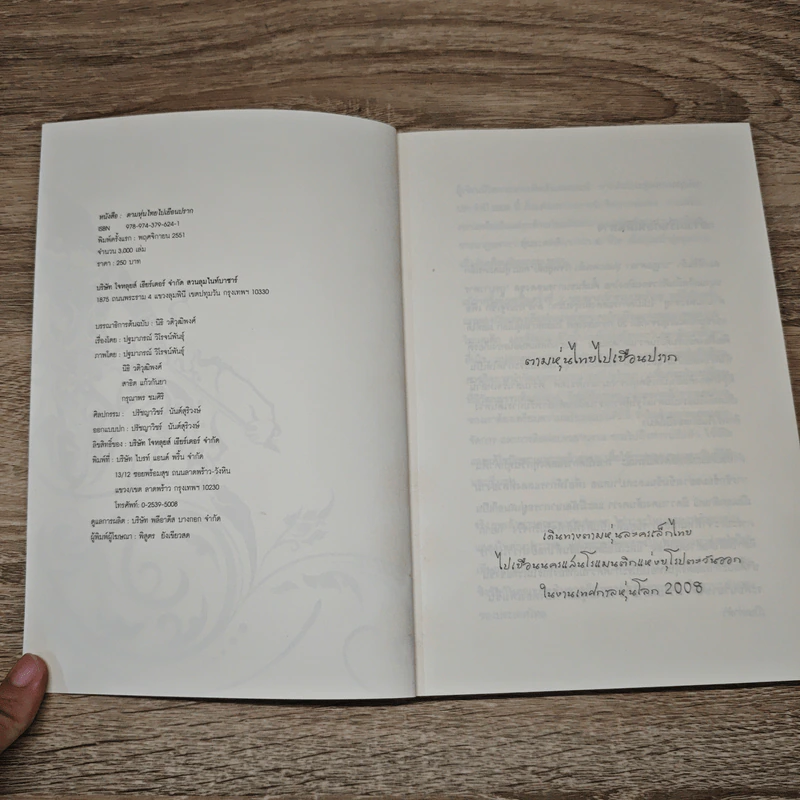 หนังสือ : ตามหุ่นไทยไปเยือนปราก
ISBN 978-974-379-624-1
พิมพ์ครั้งแรก : พฤศจิกายน 2551
จำนวน 3,000 เล่ม
ราคา : 250 บาท
บริษัท โจหลุยส์ เธียร์เตอร์ จำกัด สวนลุมไนท์บาซาร์
1875 ถนนพระราม 4 แขวงลุมพินี เขตปทุมวัน กรุงเทพฯ 10330
บรรณาธิการต้นฉบับ : นิธิ วติวุฒิพงศ์
เรื่องโดย : ปฐมาภรณ์ วิโรจน์พันธุ์
ภาพโดย : ปฐมาภรณ์ วิโรจน์พันธุ์
นิธิ วติวุฒิพงศ์
สาธิต แก้วกันยา
กรุณาพร ชมศิริ
ศิลปกรรม : ปรัชญาวัชร์ นันต์สุริวงษ์
ออกแบบปก : ปรัชญาวัชร์ นันต์สุริวงษ์
ลิขสิทธิ์ของ : บริษัท โจหลุยส์ เธียร์เตอร์ จำกัด
พิมพ์ที่ : บริษัท ไบรท์ แอนด์ พริ้น จำกัด
13/12 ซอยพร้อมสุข ถนนลาดพร้าว-วังหิน
แขวง/เขต ลาดพร้าว กรุงเทพฯ 10230
โทรศัพท์: 0-2539-5008
ดูแลการผลิต : บริษัท พลีอาดีส บางกอก จำกัด
ผู้พิมพ์ผู้โฆษณา : พิสูตร ยังเขียวสด
ตามหุ่นไทยไปเยือนปราก
เดินทางตามหุ่นละครเล็กไทย
ไปเยือนนครแสนโรแมนติกแห่งยุโรปตะวันออก
ในงานเทศกาลหุ่นโลก 2008